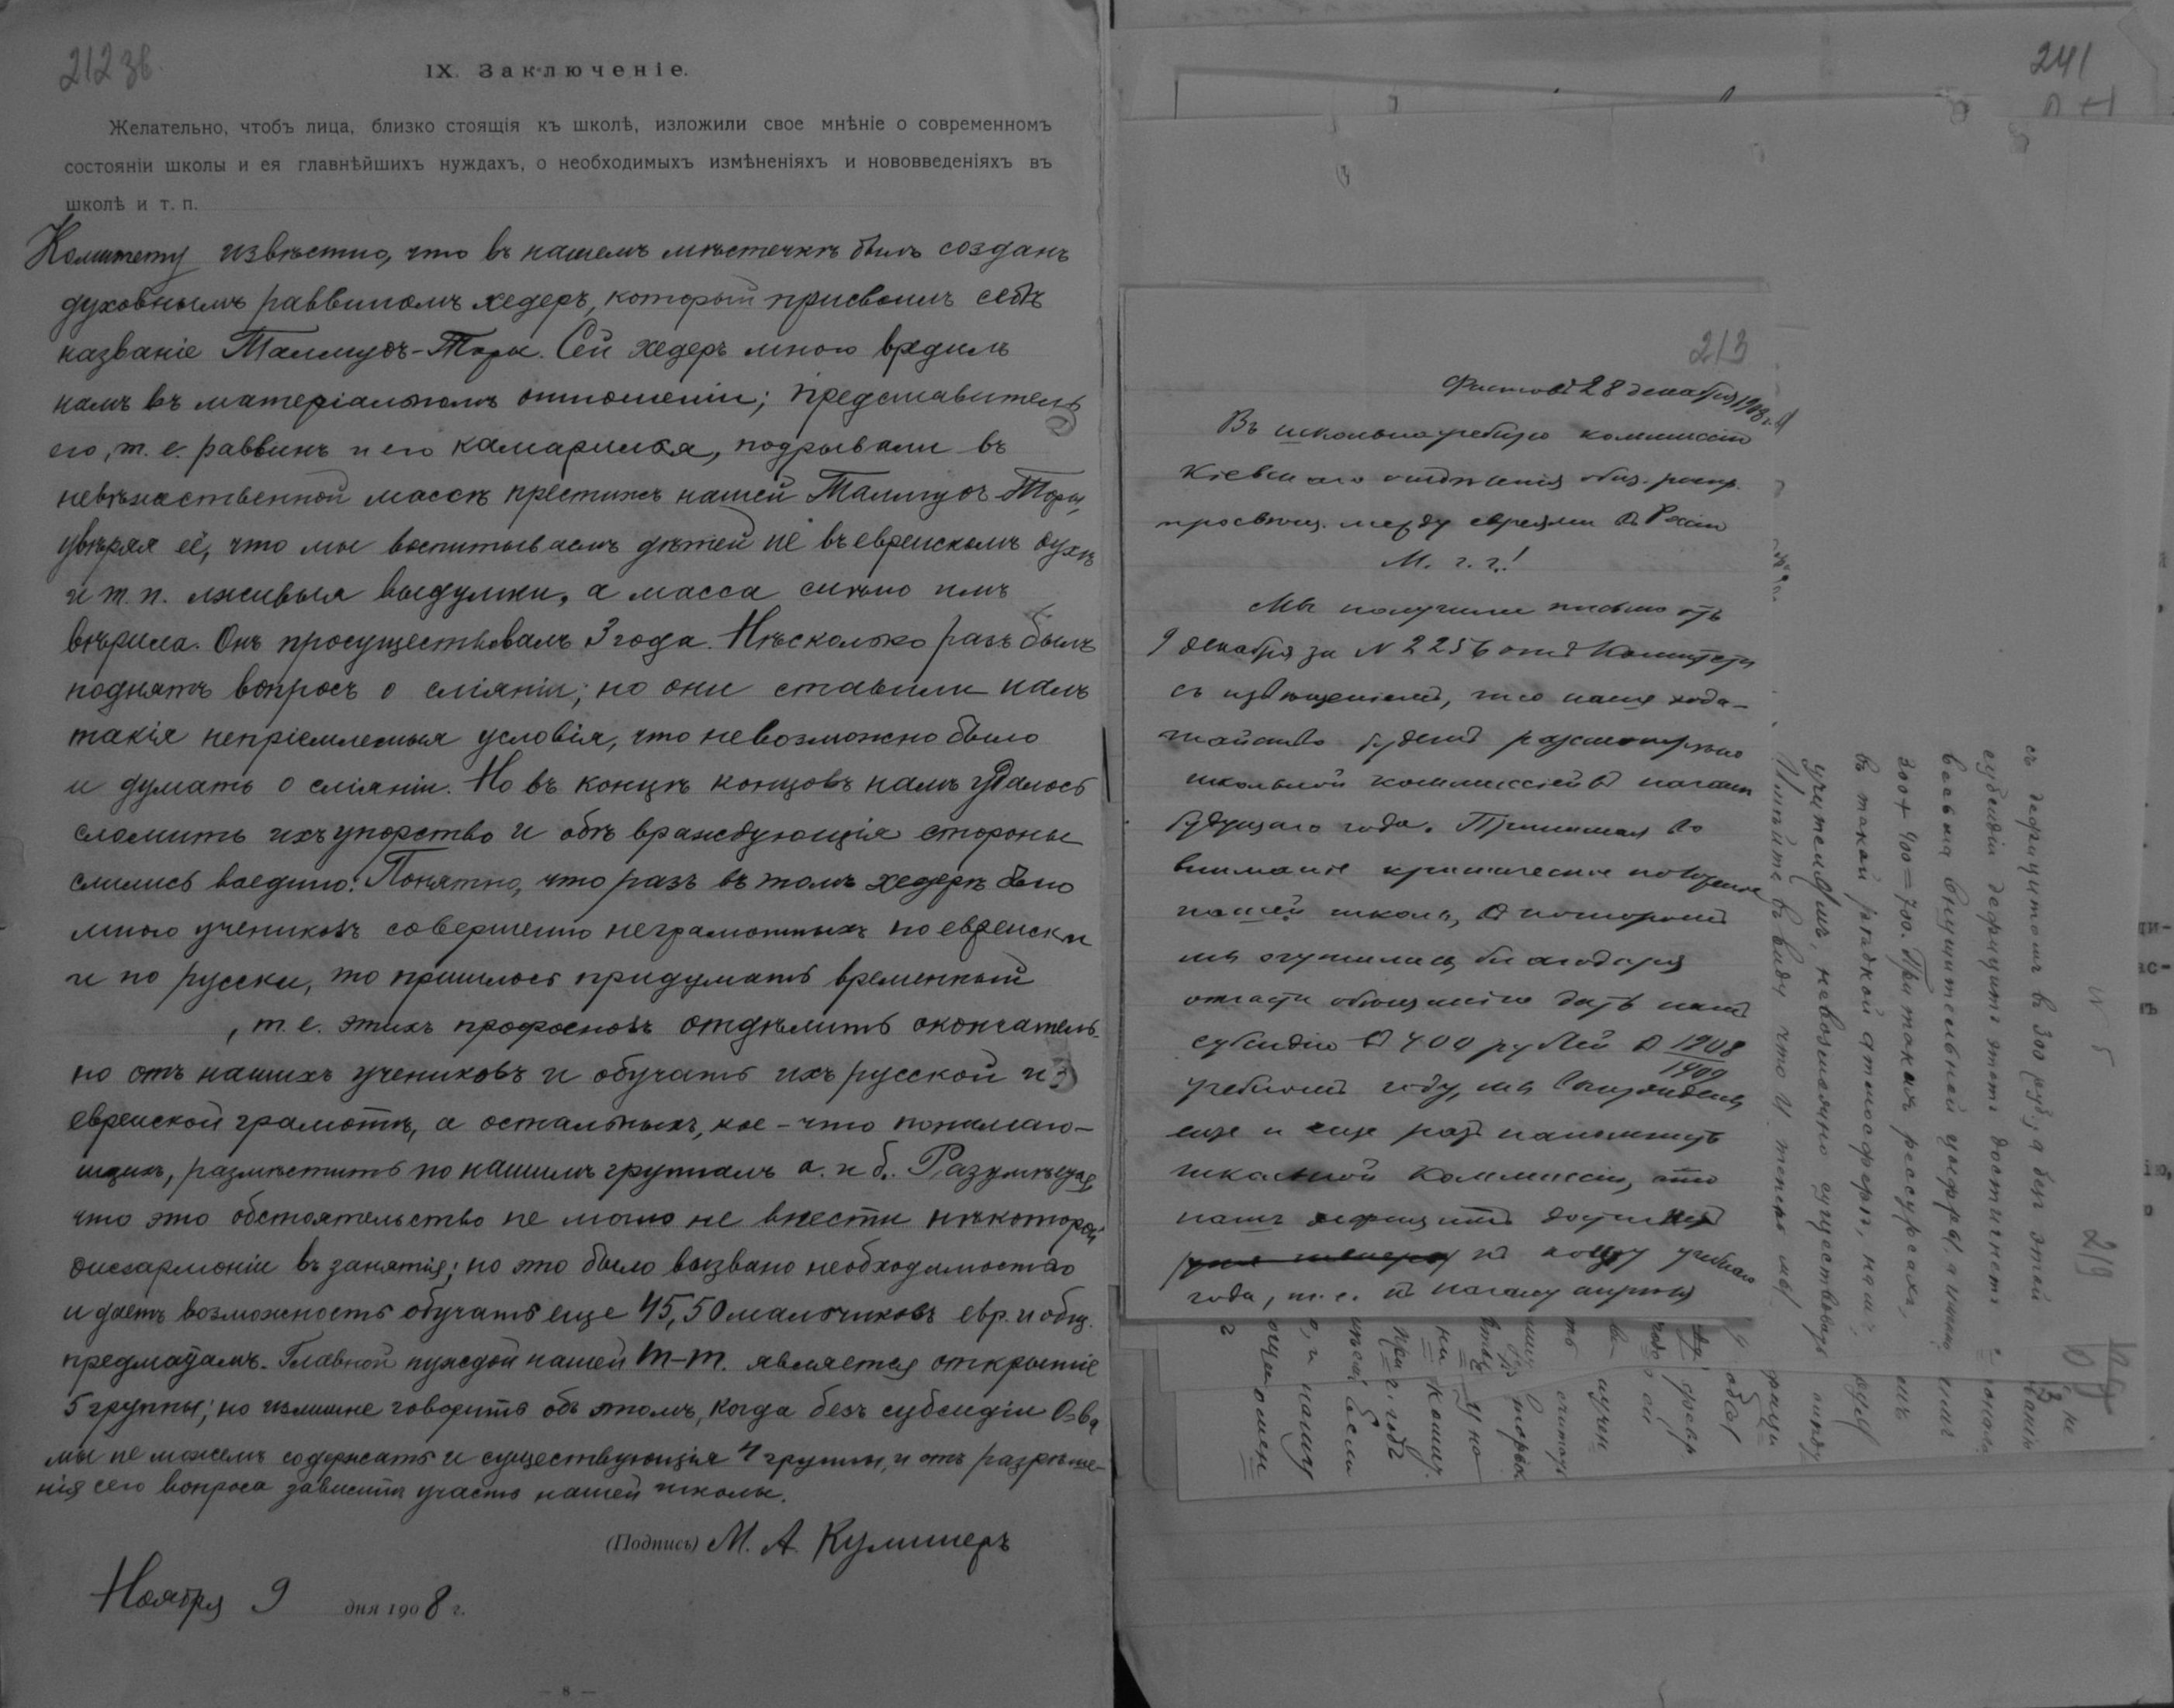 212 зв.
IX. Заключеніе.
Желательно, чтобъ лица, близко стоящія къ школѣ, изложили свое мнѣніе о современномъ
состояніи школы и ея главнѣйшихъ нуждахъ, о необходимыхъ измѣненіяхъ и нововведеніяхъ въ
школѣ и т. п.
Комитету извѣстно, что въ нашемъ мѣстечкѣ былъ созданъ
духовнымъ раввиномъ хедеръ, который присвоилъ себѣ
названіе Талмудъ-Торы. Сей хедеръ много вредилъ
намъ въ матеріальномъ отношеніи; представитель
его, т. е. раввинъ и его камарилья, подрывали въ
невѣжественной массѣ престижъ нашей Талмудъ-Торы,
увѣряя её, что мы воспитываемъ дѣтей не въ еврейскомъ духѣ
и т. п. лживыя выдумки, а масса слѣпо имъ
вѣрила. Онъ просуществовалъ 3 года. Нѣсколько разъ былъ
поднятъ вопросъ о сліяніи; но они ставили намъ
такія непріемлемыя условія, что невозможно было
и думать о сліяніи. Но въ концѣ концовъ намъ удалось
сломить ихъ упорство и обѣ враждующія стороны
слились воедино! Понятно, что разъ въ томъ хедерѣ было
много учениковъ совершенно неграмотныхъ по еврейски
и по русски, то пришлось придумать временный
, т. е. этихъ профановъ отдѣлить окончатель-
но отъ нашихъ учениковъ и обучать ихъ русской и
еврейской грамотѣ, а остальныхъ, кое-что понимаю-
щихъ, размѣстить по нашимъ группамъ а. и б. Разумѣется
что это обстоятельство не могло не внести нѣкоторой
дисгармоніи въ занятія; но это было вызвано необходимостью
и даетъ возможность обучать еще 45,50 мальчиковъ евр. и общ.
предметамъ. Главной нуждой нашей Т-Т. является открытіе
5 группы; но излишне говорить объ этомъ, когда безъ субсидіи О-ва
мы не можемъ содержать и существующія 4 группы, и отъ разрѣше-
нія сего вопроса зависитъ участь нашей школы.
(Подпись) М. А. Кумшеръ
Ноября 9 дня 1908 г.
— 8 —
241
213
Фастовъ 28 декабря 1908 г.
Въ школьно учебную коммиссію
Кіевскаго отдѣленія общ. распр.
просвѣщ. между евреями въ Россіи
М. г. г.!
Мы получили письмо отъ
9 декабря за N 2256 отъ Комитета
съ извѣщеніемъ, что наше хода-
тайство будетъ разсмотрѣно
школьной коммиссіей въ началѣ
будущаго года. Принимая во
вниманіе критическое положеніе
нашей школы, въ которомъ
мы очутились благодаря
отчасти обѣщанію дать намъ
субсидію въ 400 рублей въ 1908
1909
учебномъ году, мы вынуждены
еще и еще разъ напомнить
школьной Коммиссіи, что
нашъ дефицитъ достигнетъ
къ концу учебнаго
года, т. е. къ началу апрѣля
Имѣйте въ виду что и теперь мы
учителямъ, невозможно существовать
въ такой рѣдкой атмосферѣ, намъ,
300 + 400 = 700. При такихъ ресурсахъ,
весьма внушительной цыфры, а именно
субсидіи дефицитъ этотъ достигнетъ
съ дефицитомъ въ 300 руб, а безъ этой
N 5
219